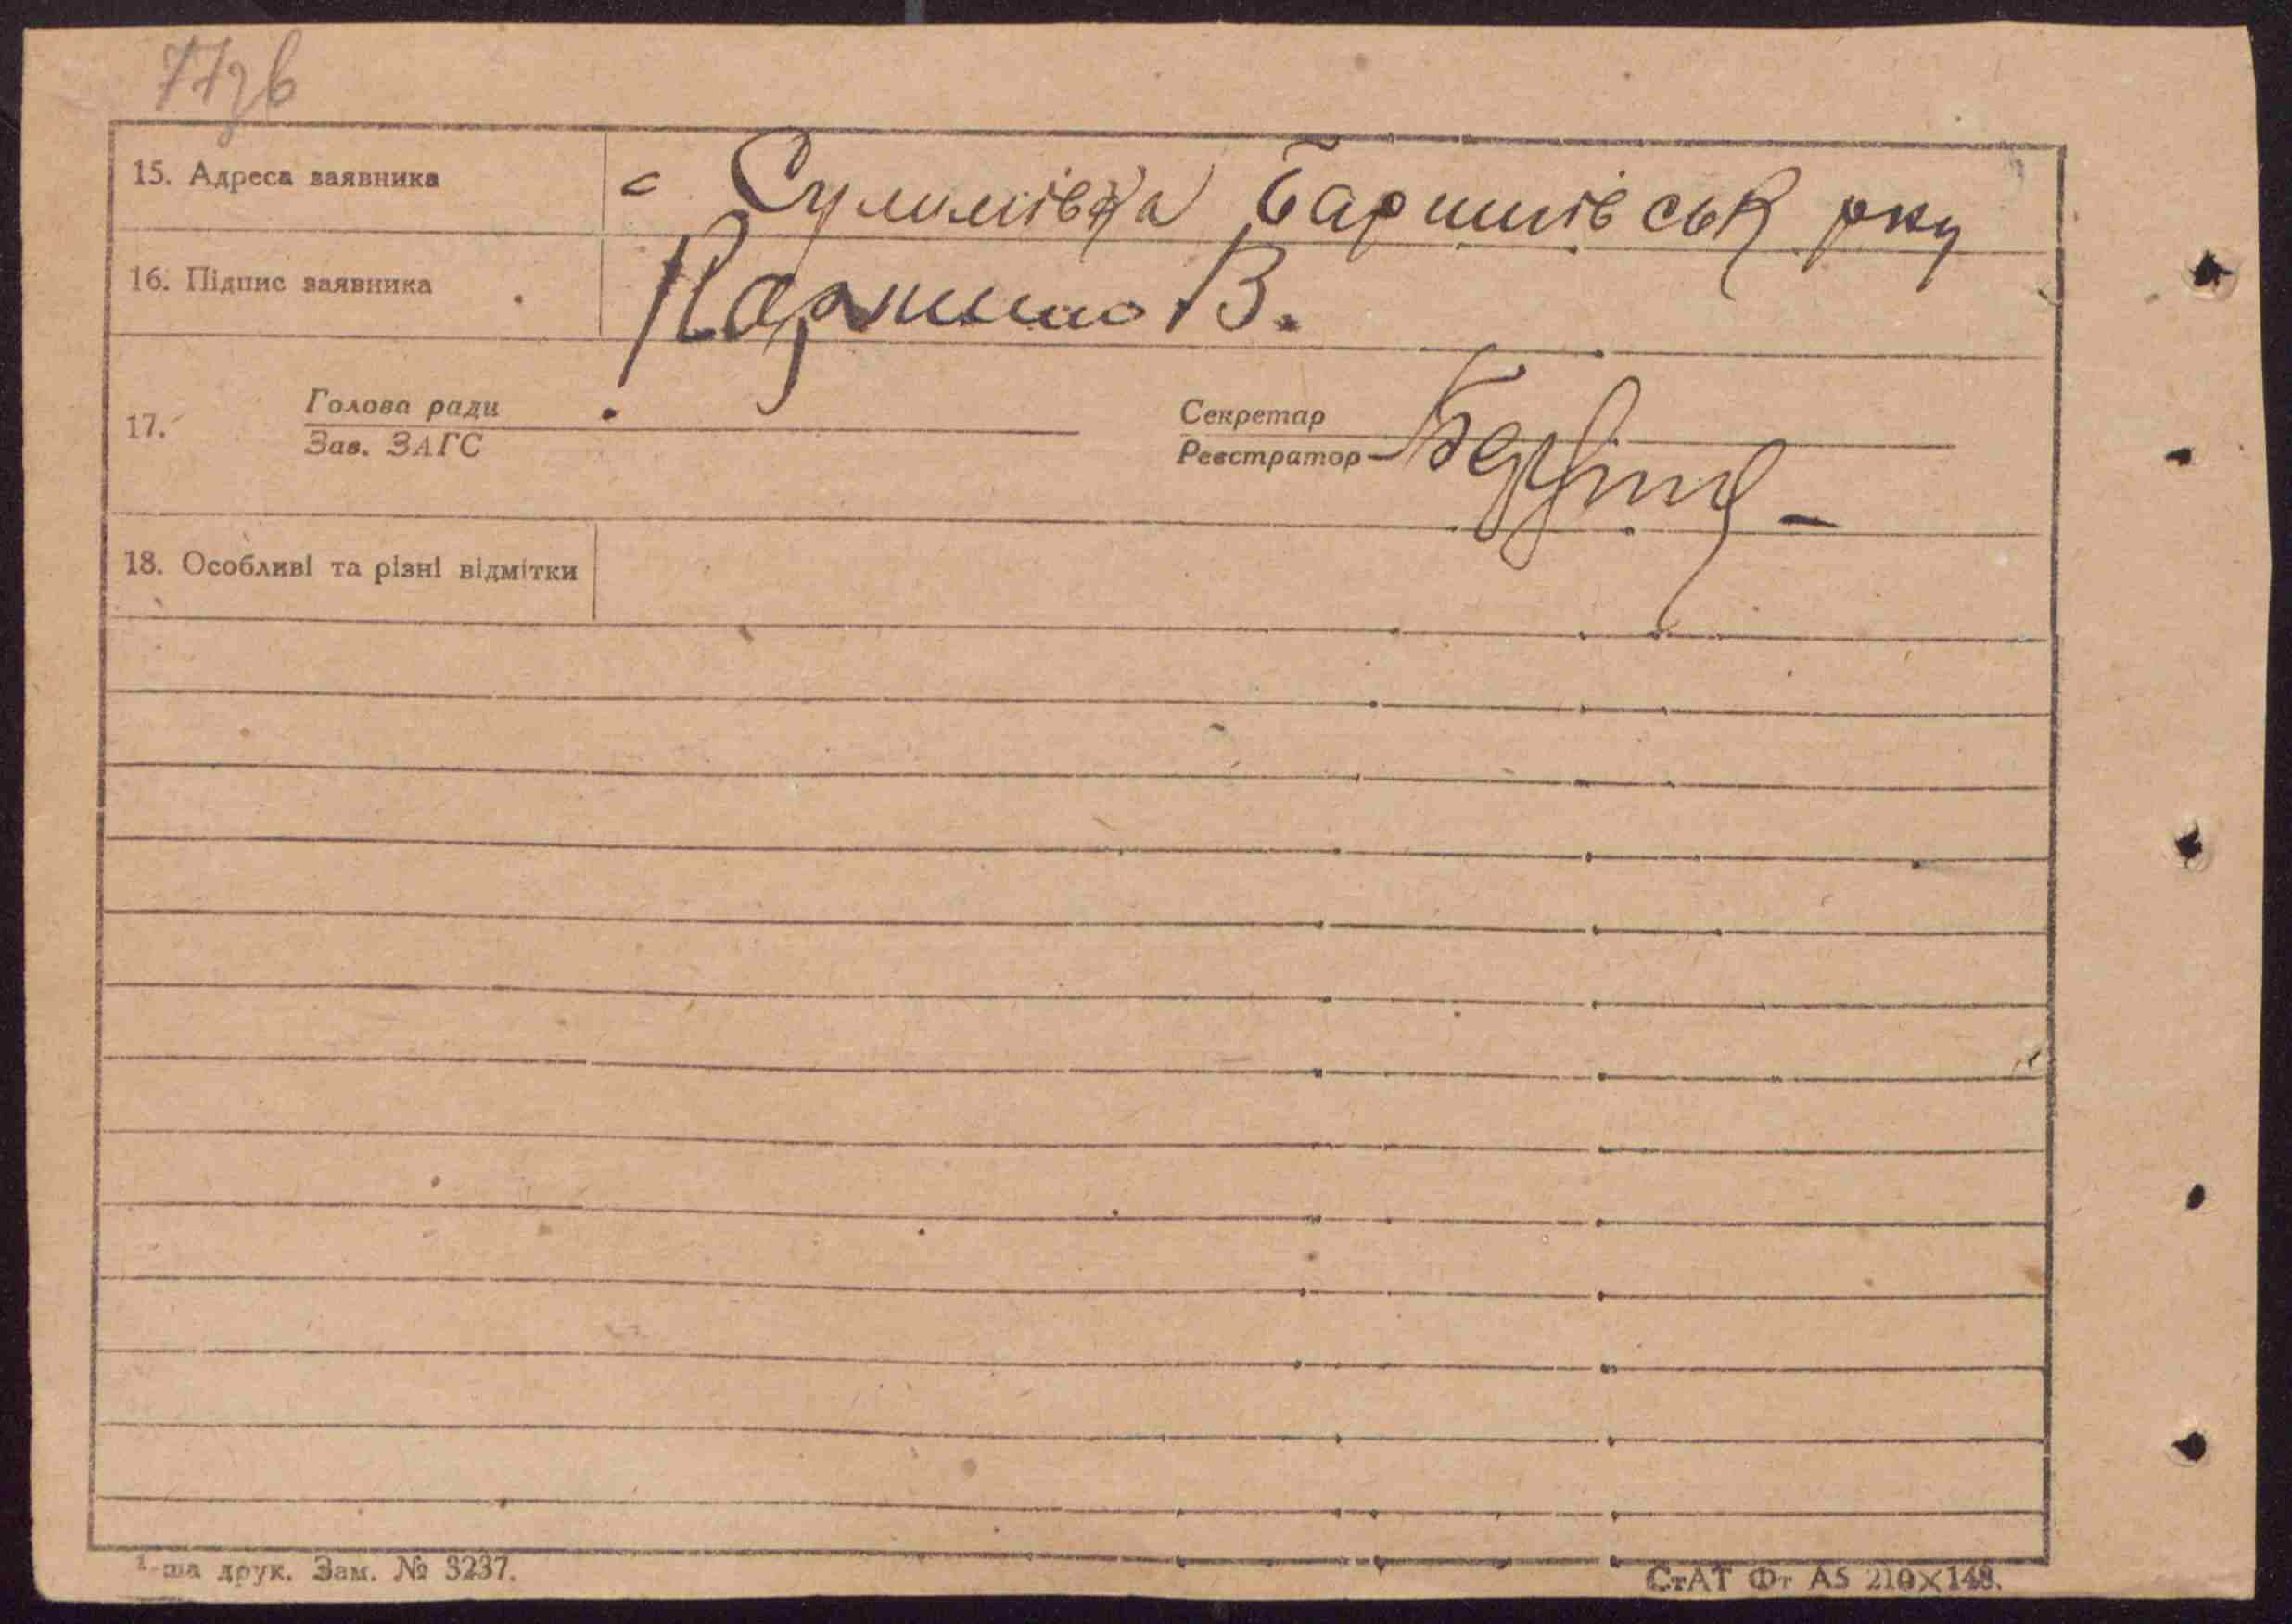 77зв
15. Адреса заявника с Сулимівка Баришівськ рну
16. Підпис заявника В.
17. Голова ради Секретар
Зав. ЗАГС Реєстратор
18. Особливі та різні відмітки
1-ша друк. Зам. № 3237. СтАТ Фт А5 210×148.